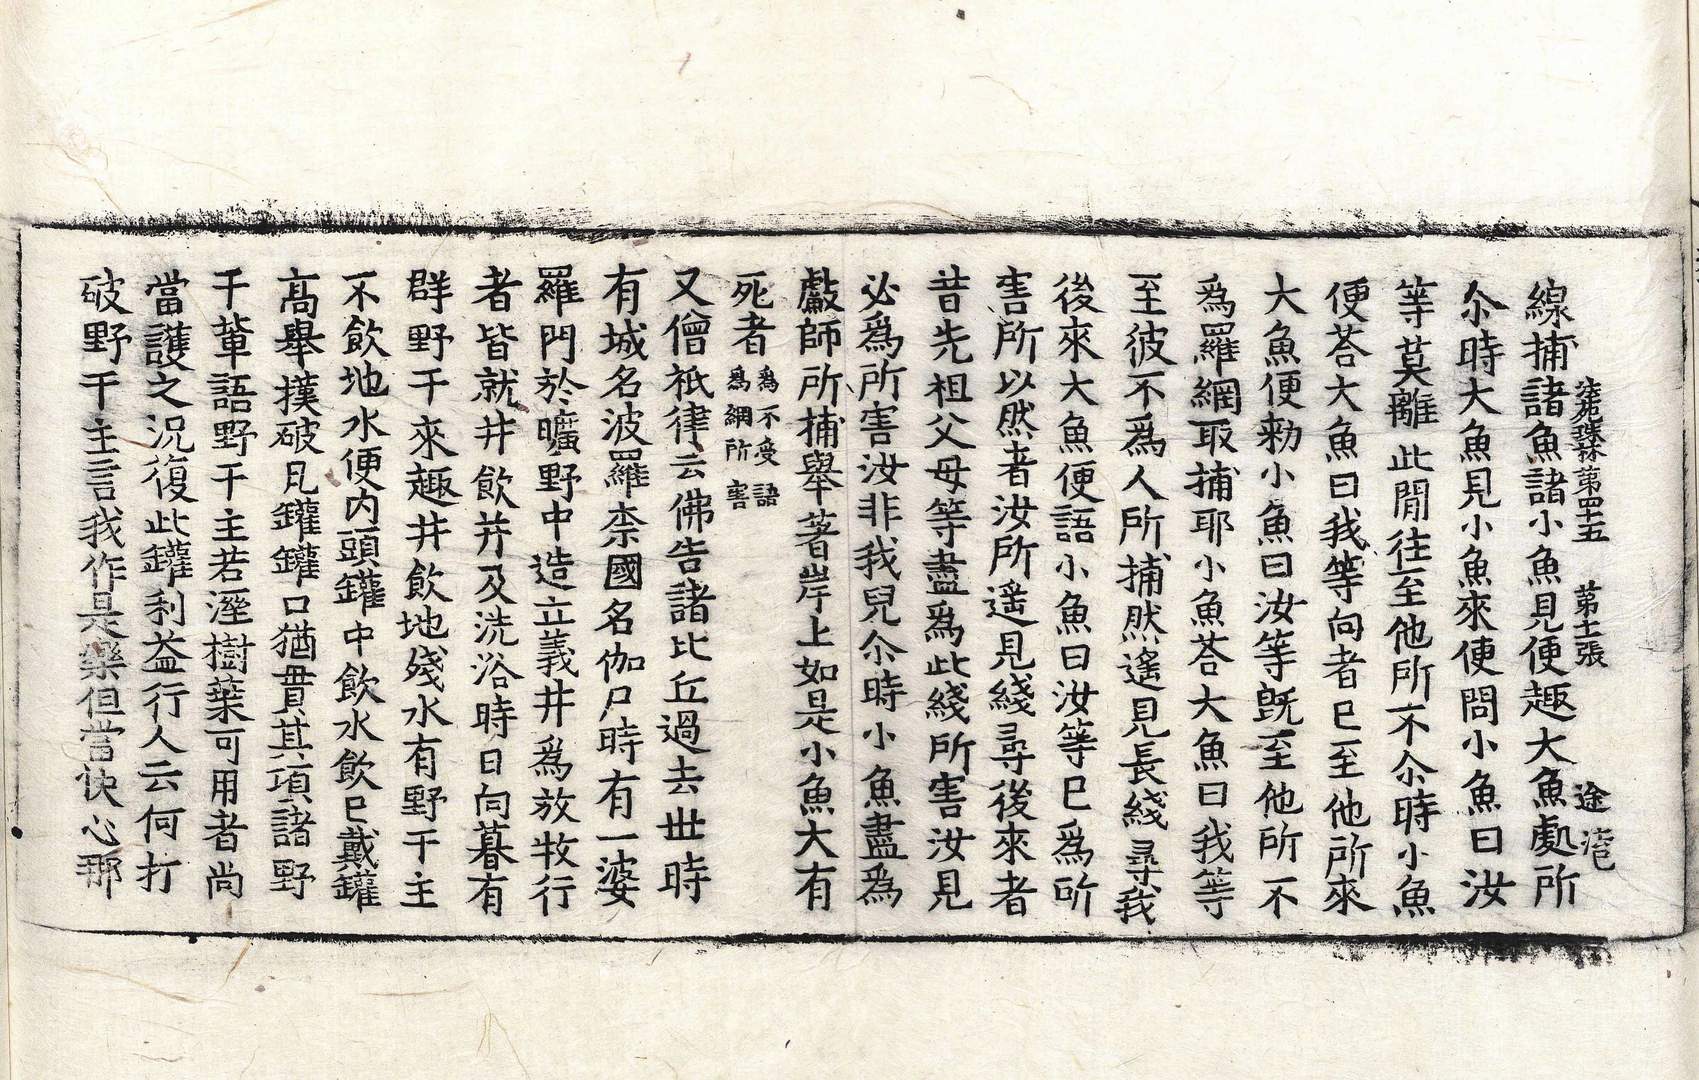 法苑珠林第四十五 第十一張 途
線捕諸魚諸小魚見便趣大魚處所
尒時大魚見小魚來便問小魚曰汝
等莫離此閒往至他所不尒時小魚
便荅大魚曰我等向者已至他所來
大魚便勑小魚曰汝等旣至他所不
爲羅網取捕耶小魚荅大魚曰我等
至彼不爲人所捕然遙見長綫尋我
後來大魚便語小魚曰汝等已爲所
害所以然者汝所遥見綫尋後來者
昔先祖父母等盡爲此綫所害汝見
必爲所害汝非我兒尒時小魚盡爲
䱷師所捕舉著岸上如是小魚大有
死者爲不受語爲網所害
又僧祇律云佛告諸比丘過去世時
有城名波羅柰國名伽尸時有一婆
羅門於曠野中造立義井爲放牧行
者皆就井飮并及洗浴時日向暮有
群野干來趣井飮地殘水有野干主
不飮地水便內頭罐中飮水飮已戴罐
高舉撲破凡罐罐口猶貫其項諸野
干輩語野干主若溼樹葉可用者尚
當護之況復此罐利益行人云何打
破野干主言我作是樂但當快心那